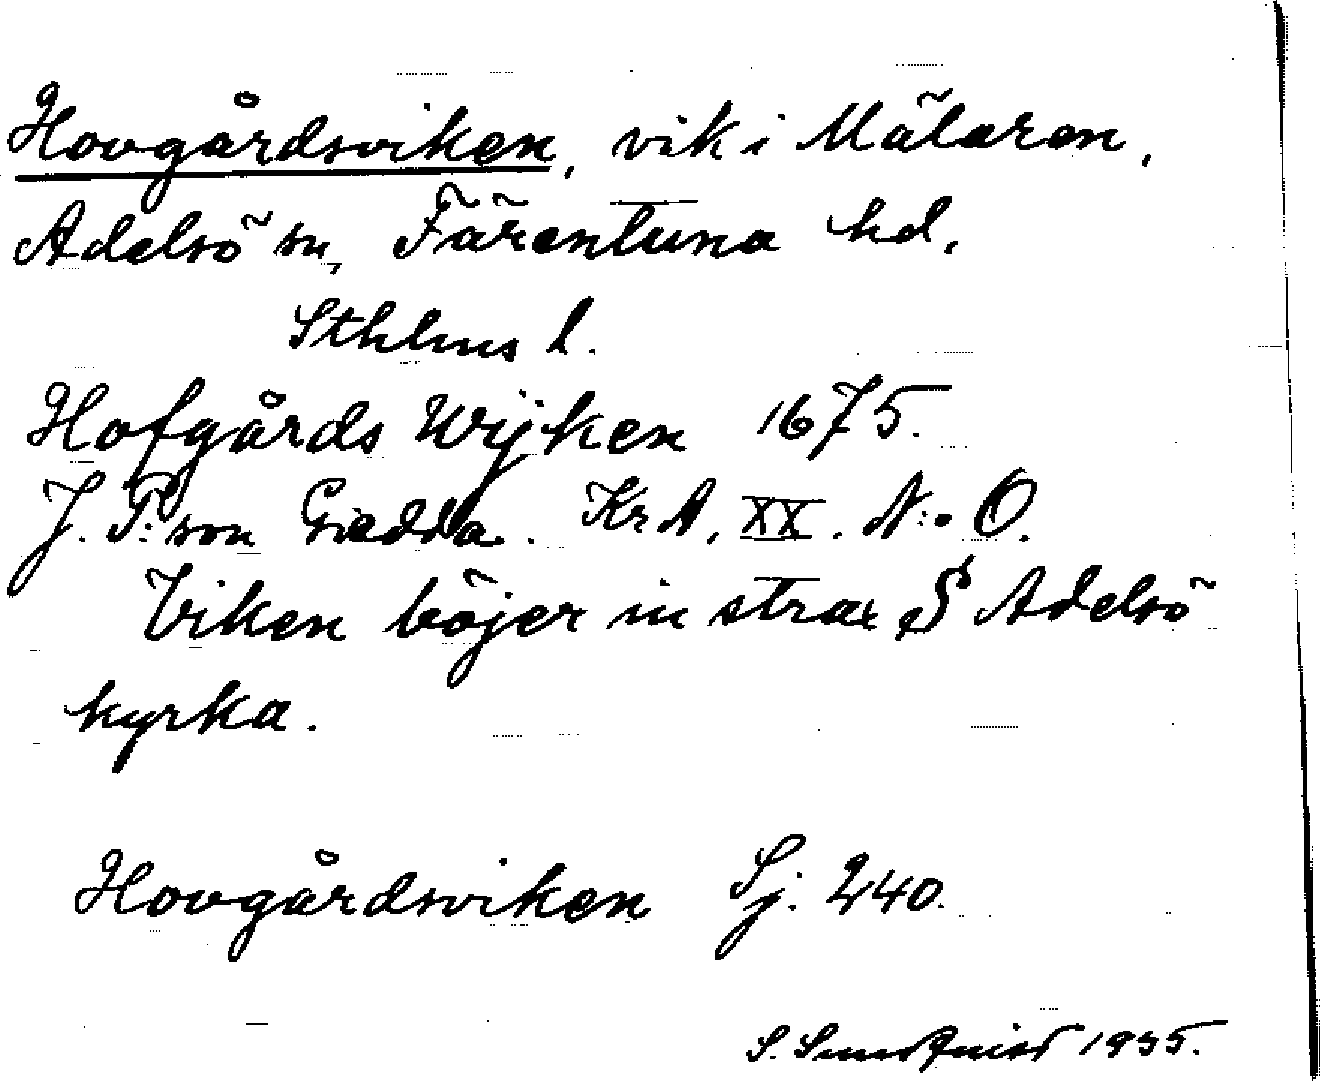 Hovgårdsviken, vik i Mälaren,
Adelsö sn, Färentuna hd.
Sthlms l.
Hofgårds Wijken 1675.
J. P:son Giedda. KrA, XX. N:o O.
Viken böjer in strax S Adelsö
kyrka.
Hovgårdsviken Sj. 240.
S. Sundquist 1935.